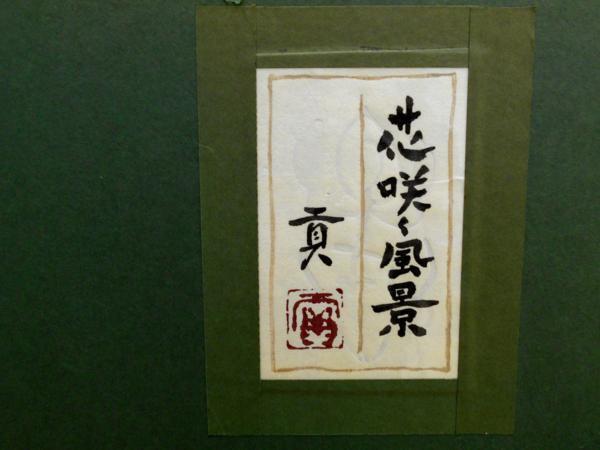 花咲く風景
貢